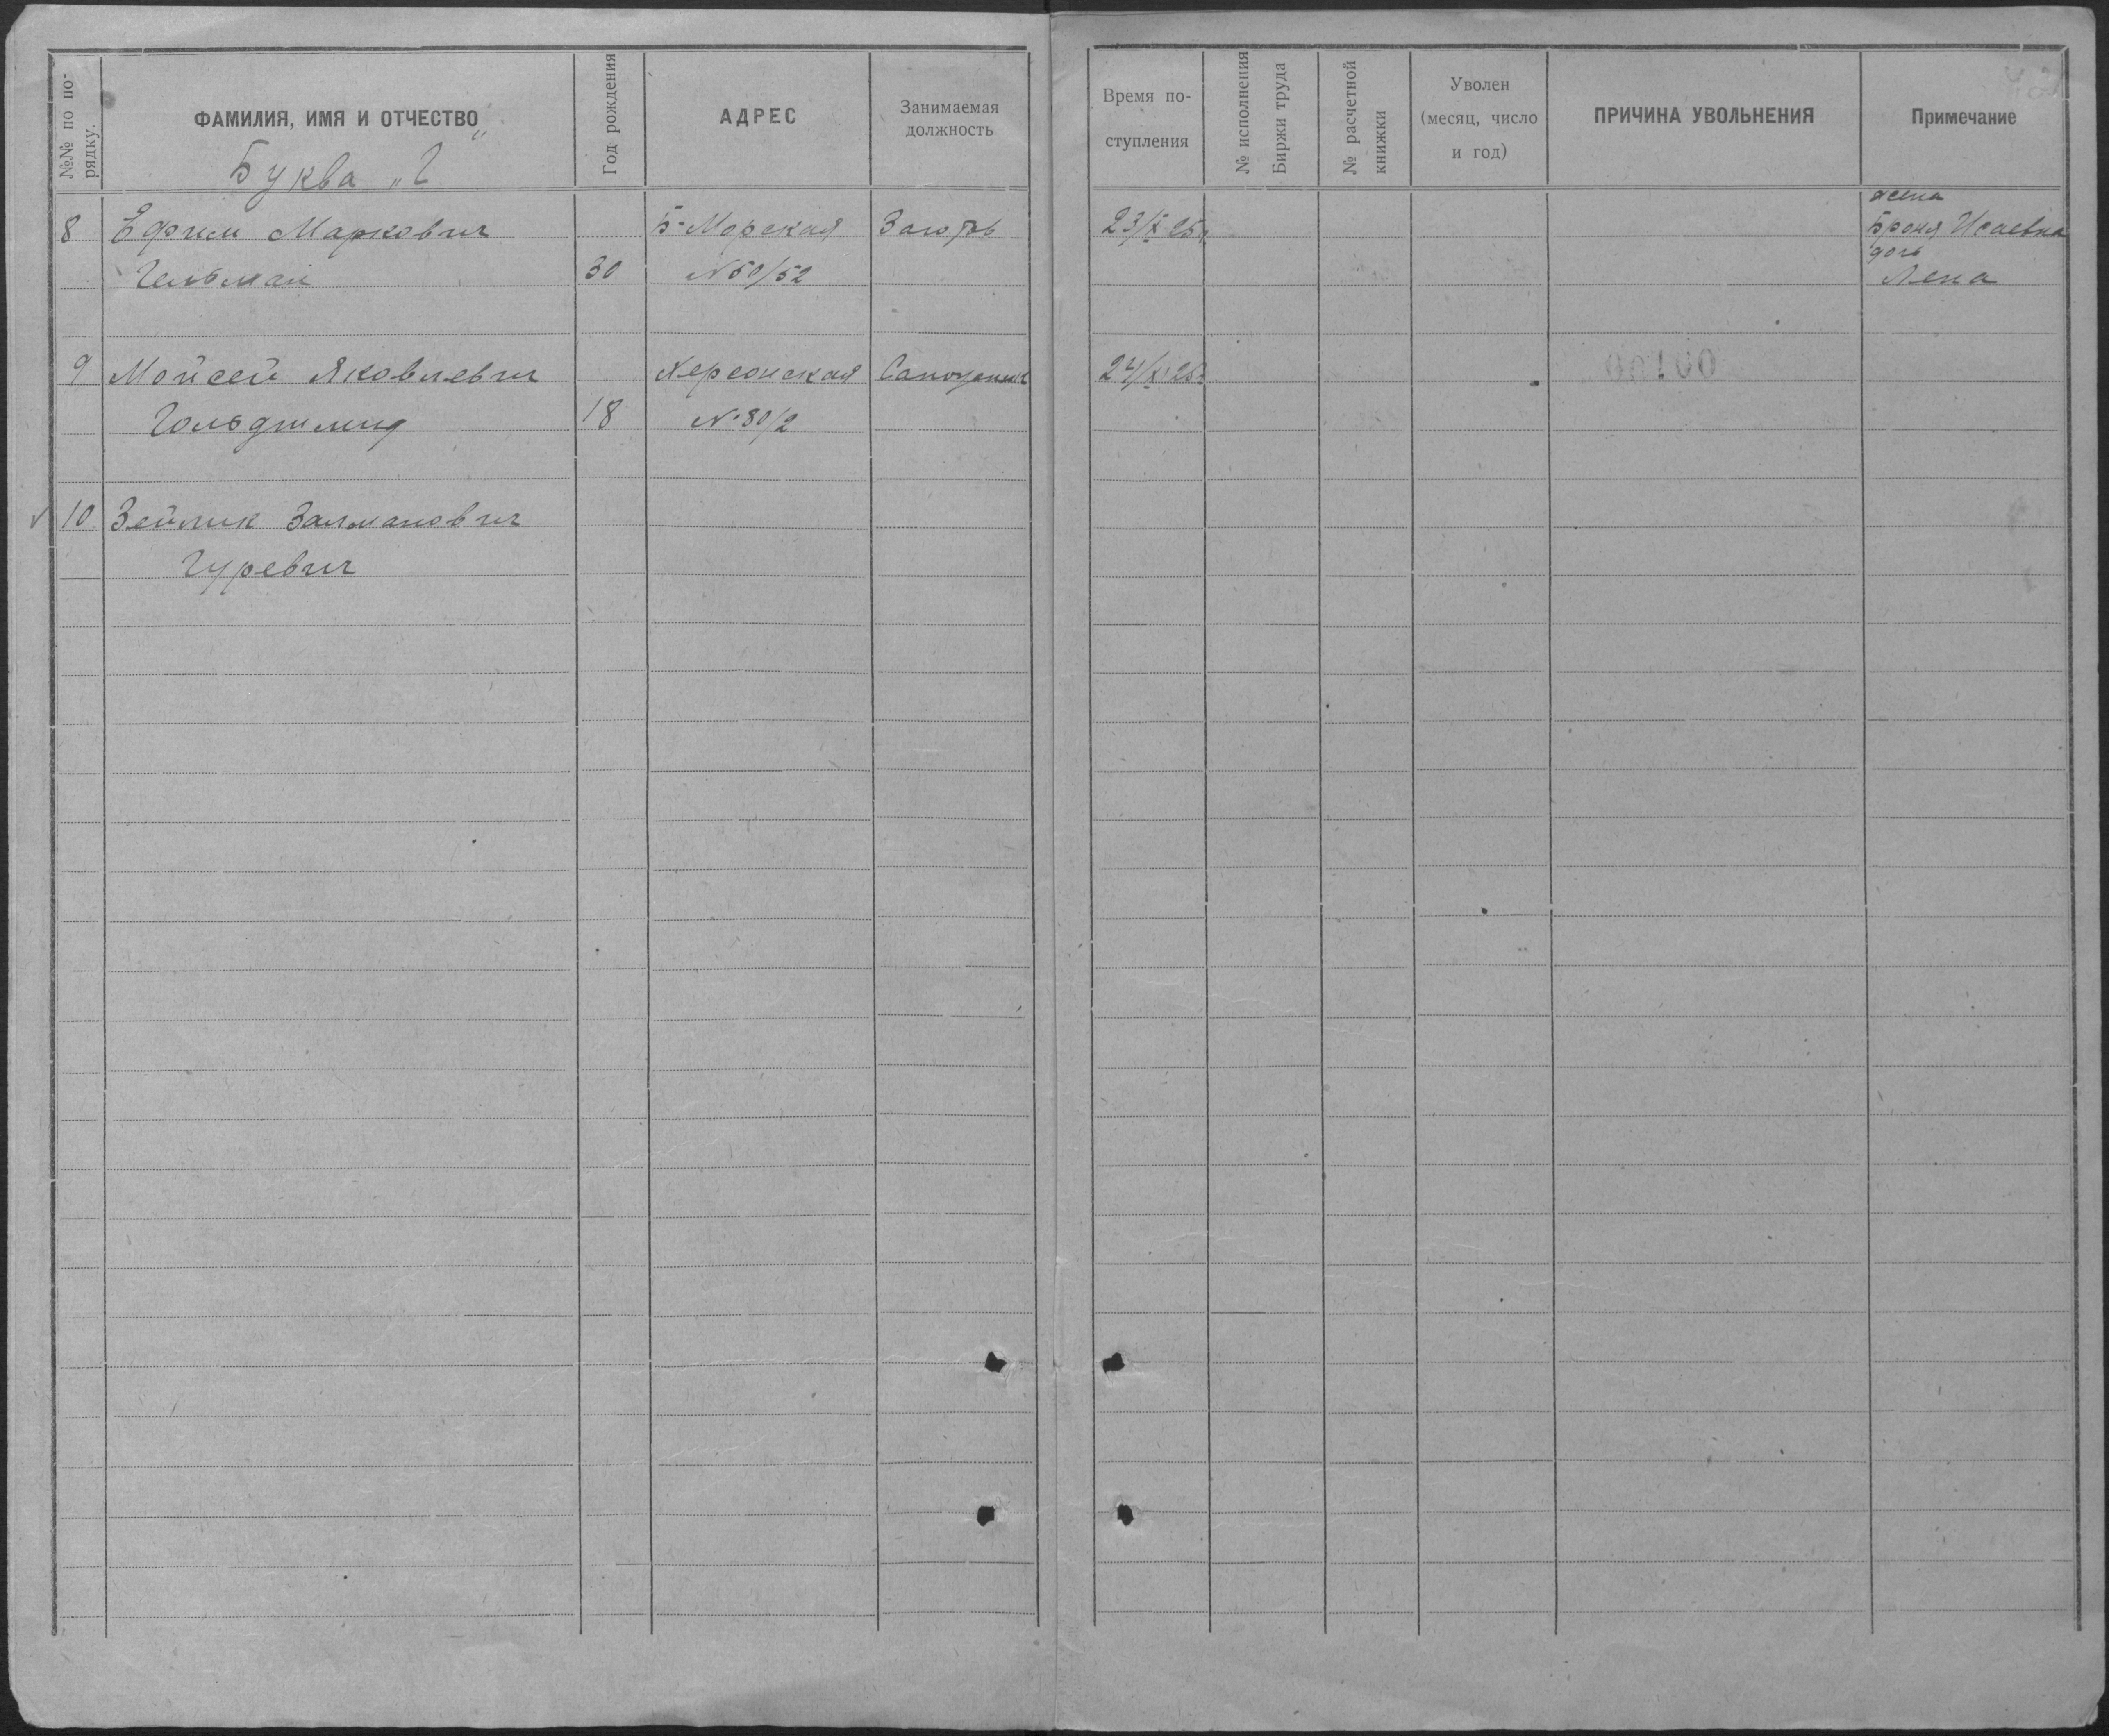 №№ по по-
рядку.
ФАМИЛИЯ, ИМЯ И ОТЧЕСТВО
Буква „Г“
Год рождения
АДРЕС
Занимаемая
должность
Время по-
ступления
№ исполнения
Биржи труда
№ расчетной
книжки
Уволен
(месяц, число
и год)
ПРИЧИНА УВОЛЬНЕНИЯ
Примечание
жена
8 Ефрим Маркович Б-Морская 23/X 25г Броня Исаевна
дочь
Гельман 30 №50/52 Лена
9 Мойсей Яковлевич Херсонская 24/X 25г
Гольдшмид 18 №80/2
10 Зейлик Залманович
Гуревич